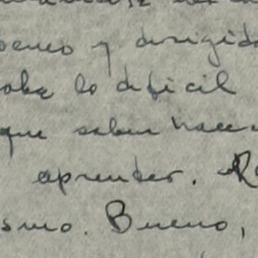 y dirigido
lo dificil
que saber hacer
aprender.
smo. Bueno,